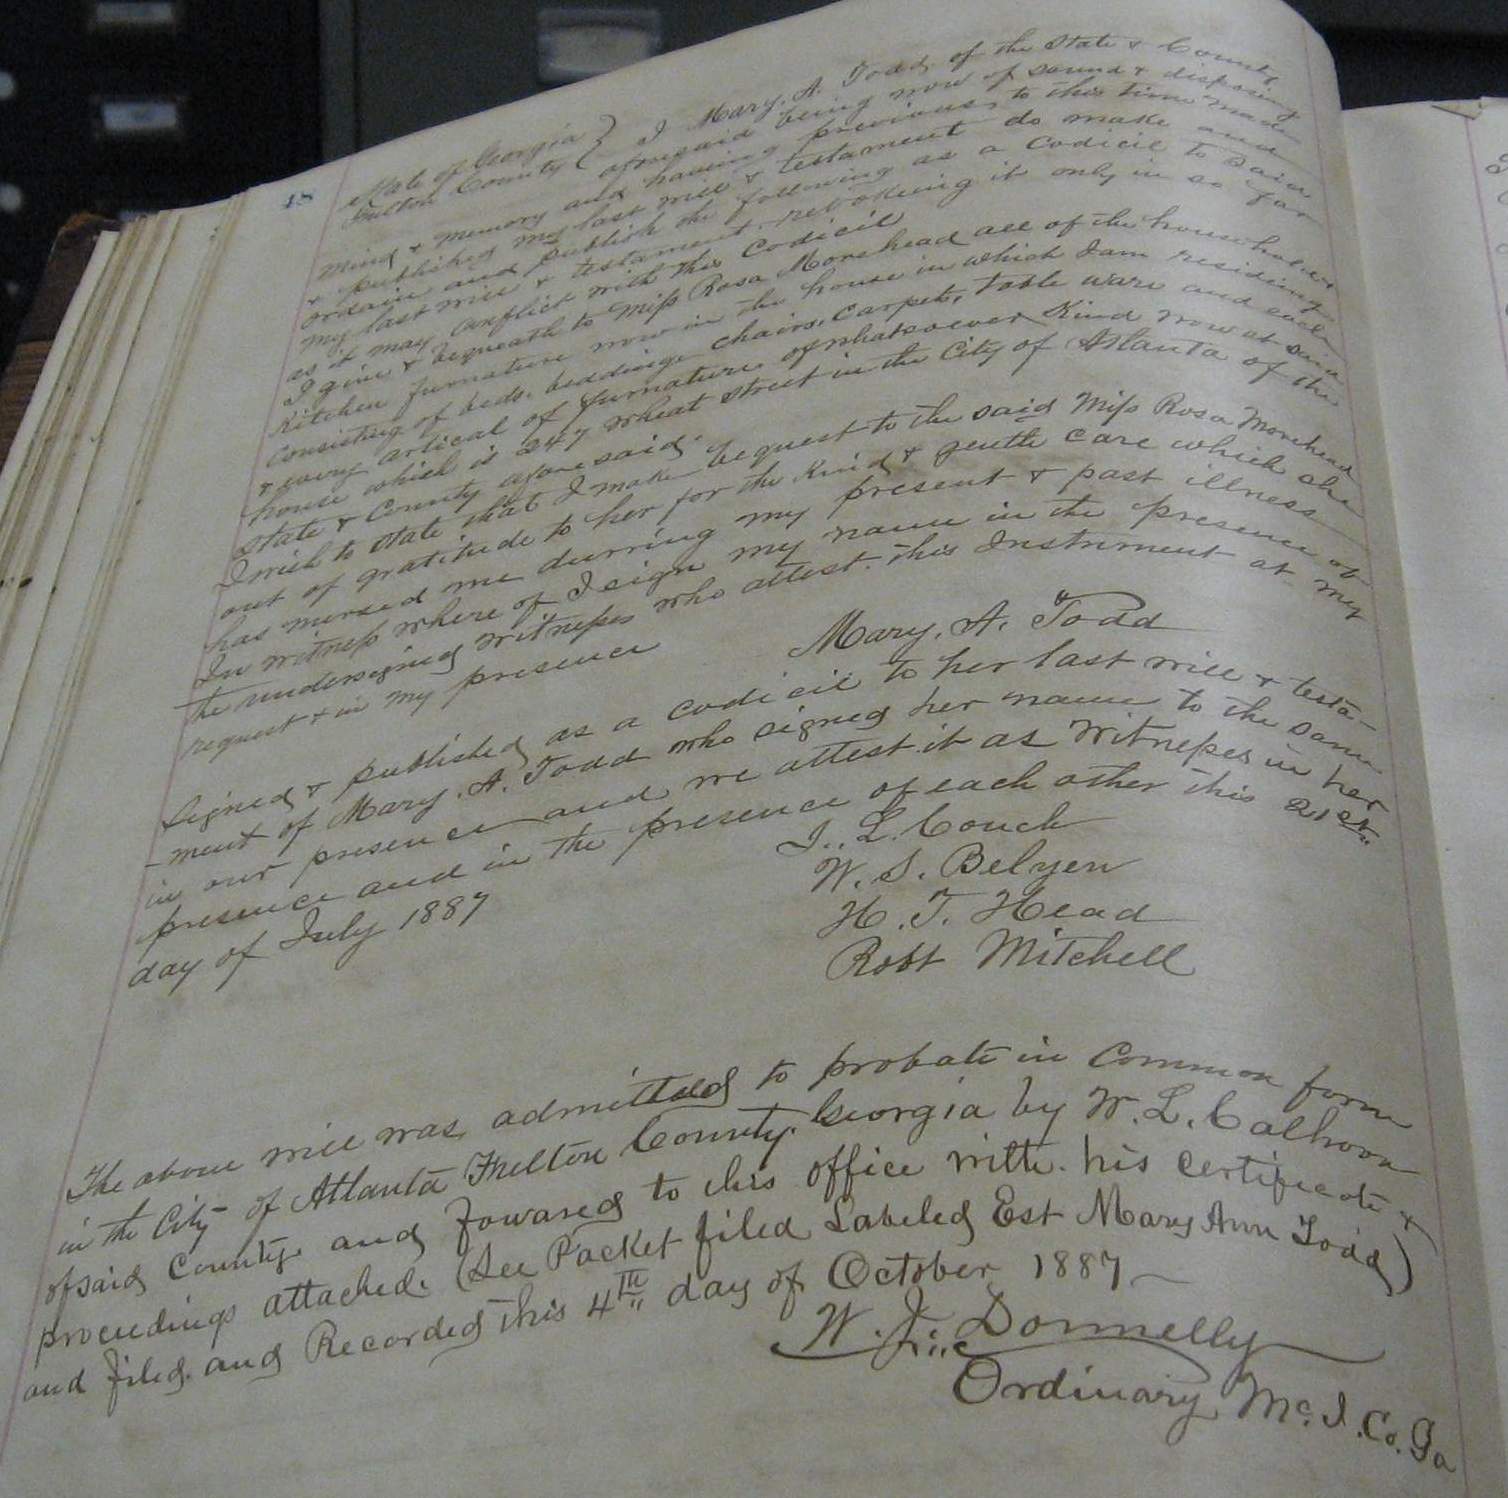 48
State of Georgia } I Mary. A. Todd of the State & County
Fulton County } aforesaid being now of sound & disposing
mind & memory and having previous to this time made
& published my last will & testament do make and
ordain and publish the following as a Codicil to said
my last will & testament, revokeing it only in so far
as it may conflict with this Codicil
I give & bequeath to Miss Rosa Morehead all of the household &
Kitchen furnature now in the house in which I am residing
consisting of beds, bedding chairs, Carpets, table ware and each
& every artical of furnature of whatsoever Kind now at said
house which is 247 Wheat Street in the City of Atlanta of the
State & County aforesaid.
I wish to state that I make bequest to the said Miss Rosa Morehead
out of gratitude to her for the Kind & gentle care which she
has nursed me durring my present & past illness
In witness where of I sign my name in the presence of
the undersigned witnesses who attest this Instrument at my
request & in my presence
Mary. A. Todd
Signed & published as a codicil to her last will & testa-
-ment of Mary. A. Todd who signed her name to the same
in our presence and we attest it as Witnesses in her
presence and in the presence of each other this 21st
day of July 1887
J. L. Couch
W. S. Belyen
H. T. Head
Robt Mitchell
The above will was admitted to probate in Common form
in the City of Atlanta Fulton County Georgia by W. L. Calhoon
of said County and Foward to this office with his Certificate &
proceedings attached. (See Packet filed Labeled Est Mary Ann Todd)
and filed and Recorded this 4th day of October 1887
W. J. Donnelly
Ordinary Mc.I. Co. Ga